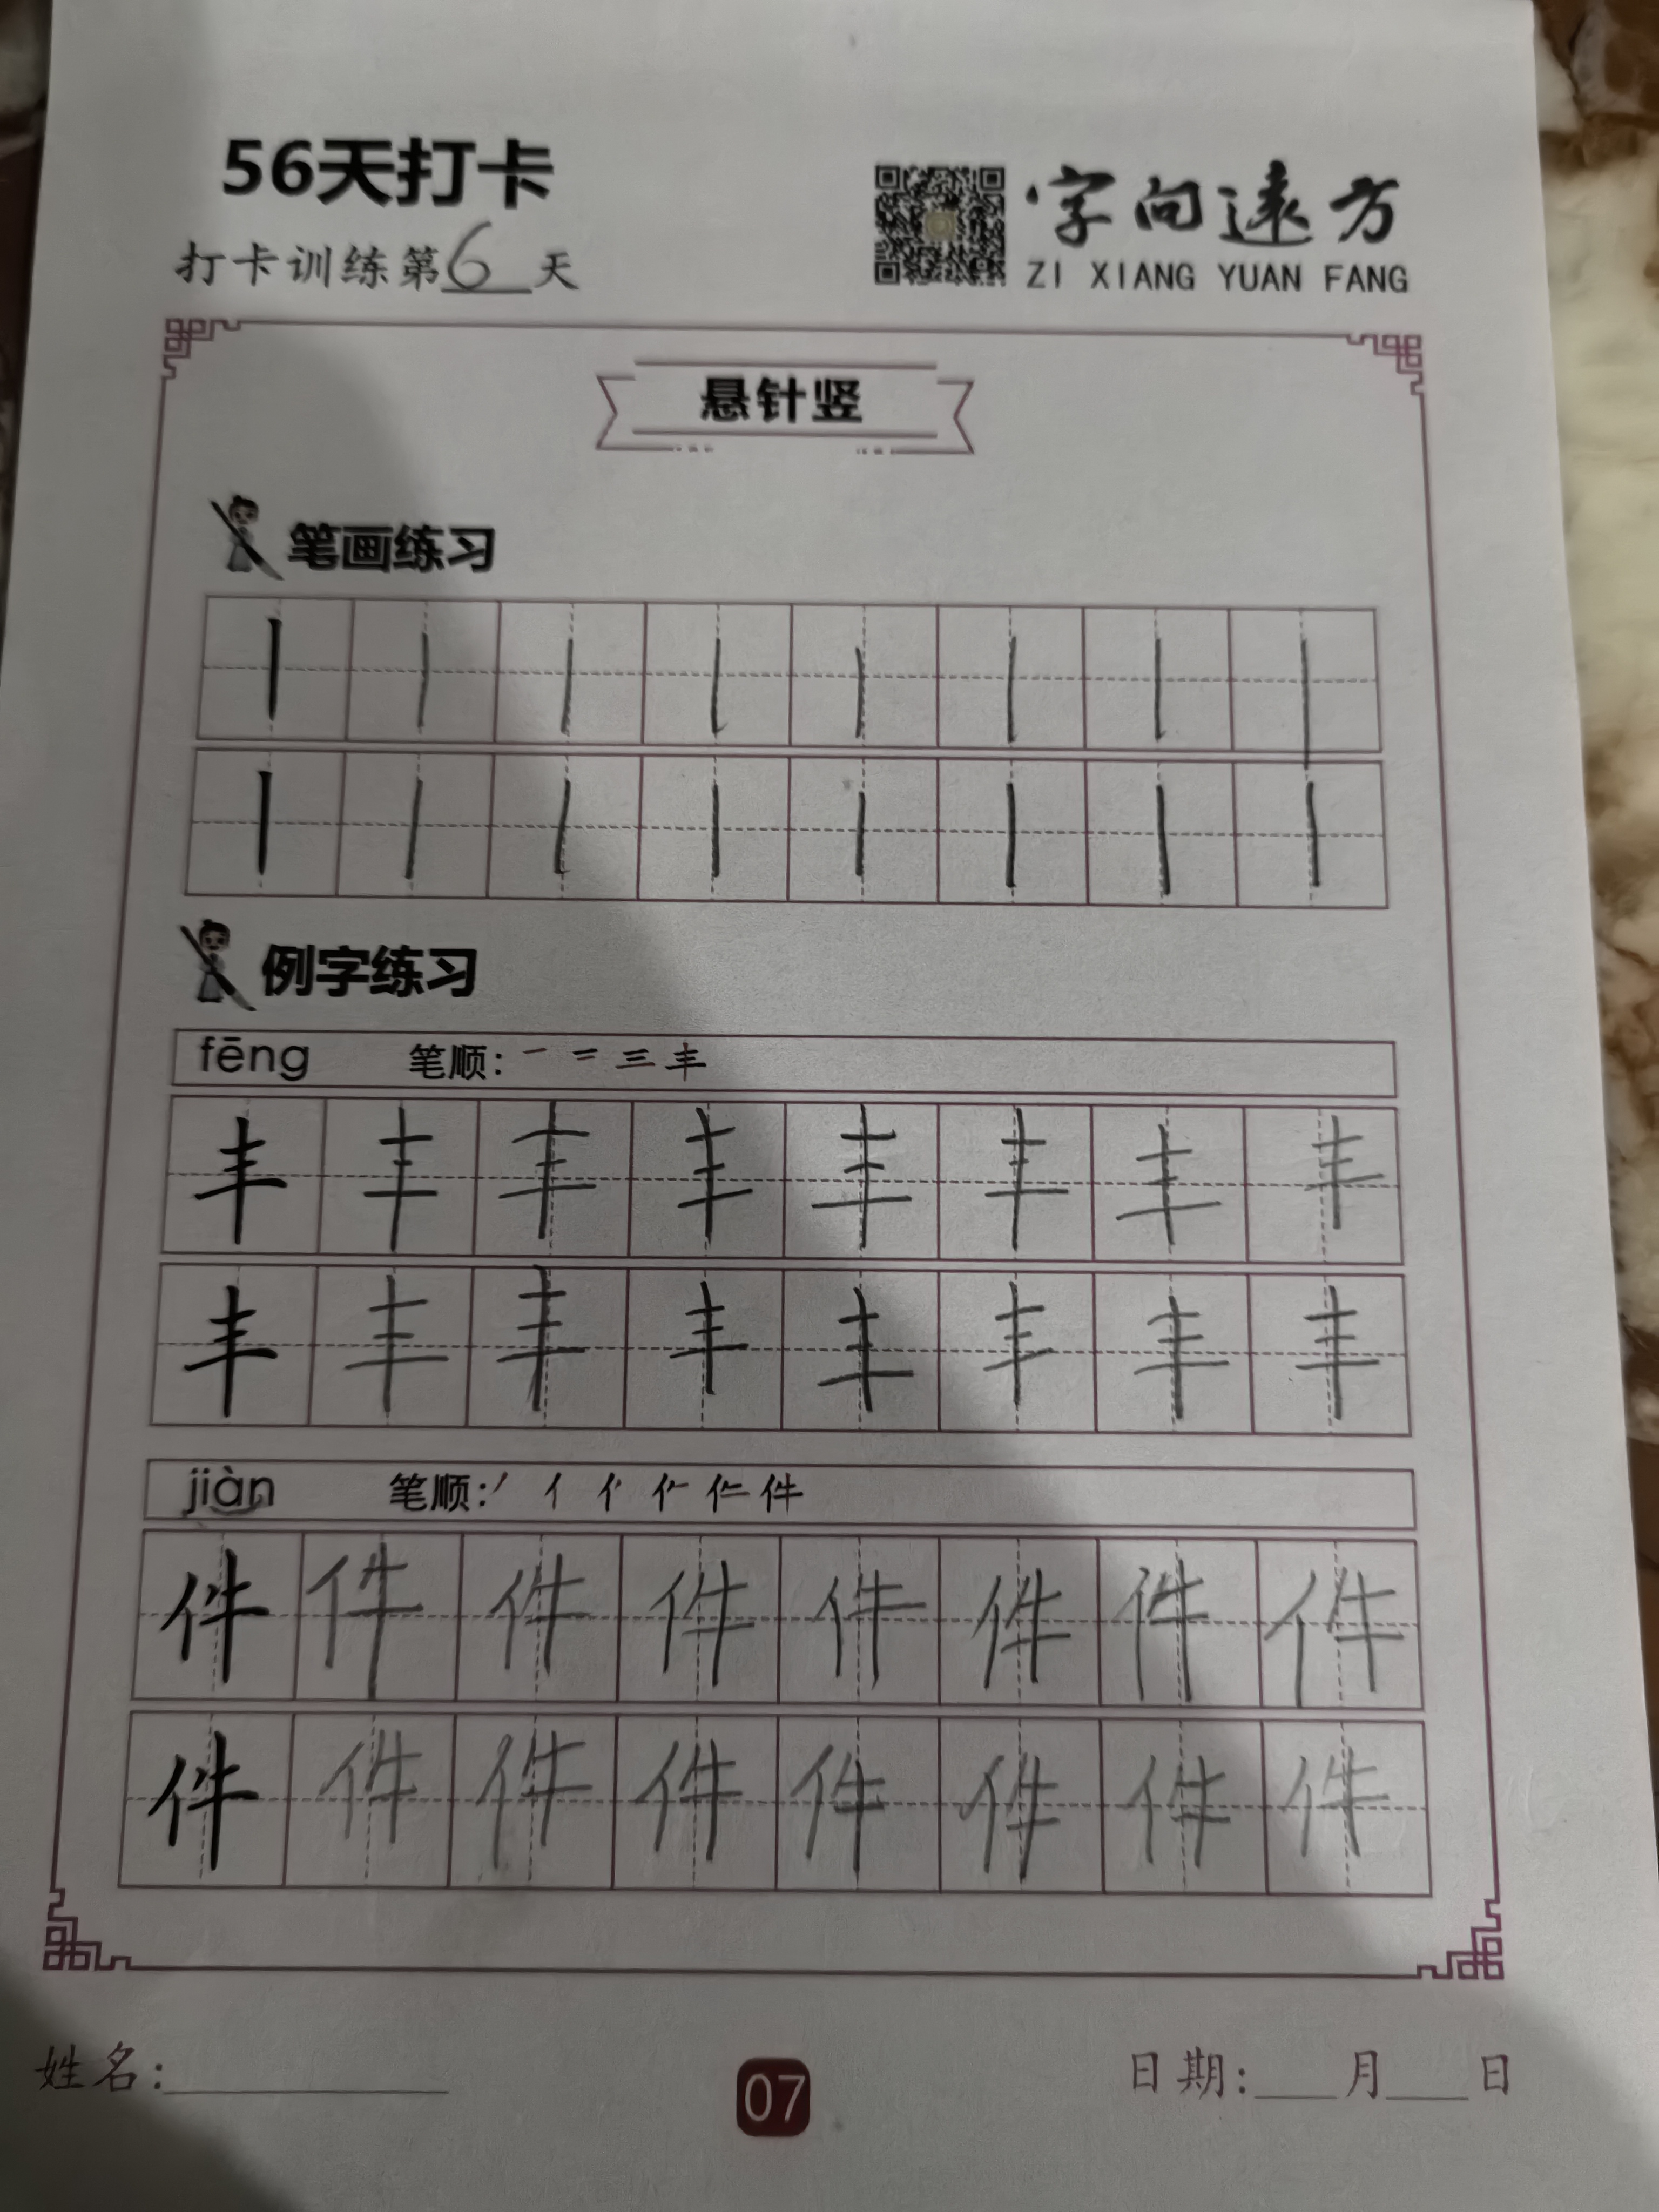 56天打卡
打卡训练第6天
字向远方
ZI XIANG YUAN FANG
悬针竖
笔画练习
丨 丨 丨 丨 丨 丨 丨 丨
丨 丨 丨 丨 丨 丨 丨 丨
例字练习
fēng 笔顺：一 二 三 丰
丰 丰 丰 丰 丰 丰 丰 丰
丰 丰 丰 丰 丰 丰 丰 丰
jiàn 笔顺：丿 亻 件
件 件 件 件 件 件 件 件
件 件 件 件 件 件 件 件
姓名：
07
日期：___月___日